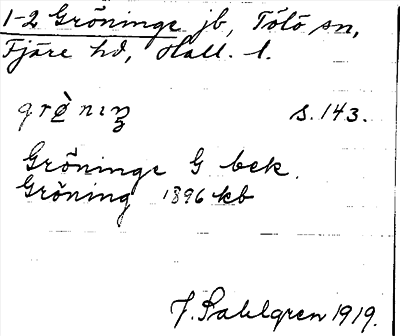 1-2 Gröninge jb, Tölö sn,
Fjäre hd, Hall. l.
grø̀niŋ s. 143.
Gröninge G bek.
Gröning 1896 kb
J. Sahlgren 1919.